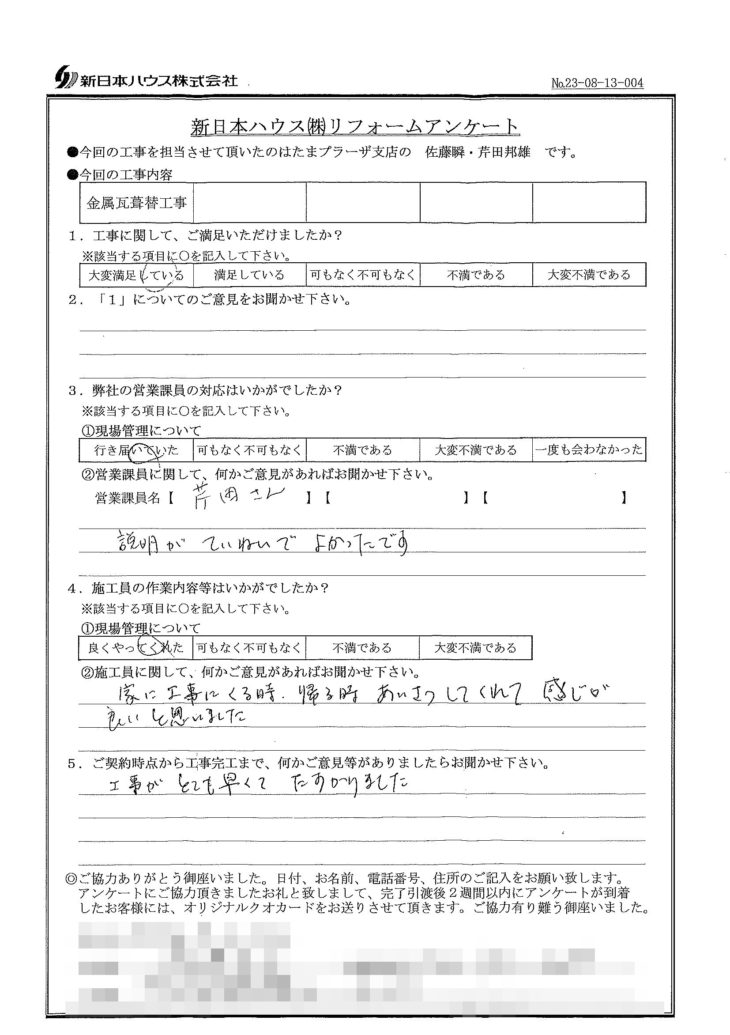 新日本ハウス株式会社
№23-08-13-004
新日本ハウス㈱リフォームアンケート
●今回の工事を担当させて頂いたのはたまプラーザ支店の 佐藤瞬・芹田邦雄 です。
●今回の工事内容
金属瓦葺替工事
1．工事に関して、ご満足いただけましたか？
※該当する項目に○を記入して下さい。
大変満足している 満足している 可もなく不可もなく 不満である 大変不満である
2．「1」についてのご意見をお聞かせ下さい。
3．弊社の営業課員の対応はいかがでしたか？
※該当する項目に○を記入して下さい。
①現場管理について
行き届いていた 可もなく不可もなく 不満である 大変不満である 一度も会わなかった
②営業課員に関して、何かご意見があればお聞かせ下さい。
営業課員名【 芹田さん 】【 】【 】
説明が ていねいで よかったです
4．施工員の作業内容等はいかがでしたか？
※該当する項目に○を記入して下さい。
①現場管理について
良くやってくれた 可もなく不可もなく 不満である 大変不満である
②施工員に関して、何かご意見があればお聞かせ下さい。
家に工事にくる時．帰る時 あいさつしてくれて 感じが
良いと思いました
5．ご契約時点から工事完工まで、何かご意見等がありましたらお聞かせ下さい。
工事が とても早くて たすかりました
◎ご協力ありがとう御座いました。日付、お名前、電話番号、住所のご記入をお願い致します。
アンケートにご協力頂きましたお礼と致しまして、完了引渡後2週間以内にアンケートが到着
したお客様には、オリジナルクオカードをお送りさせて頂きます。ご協力有り難う御座いました。